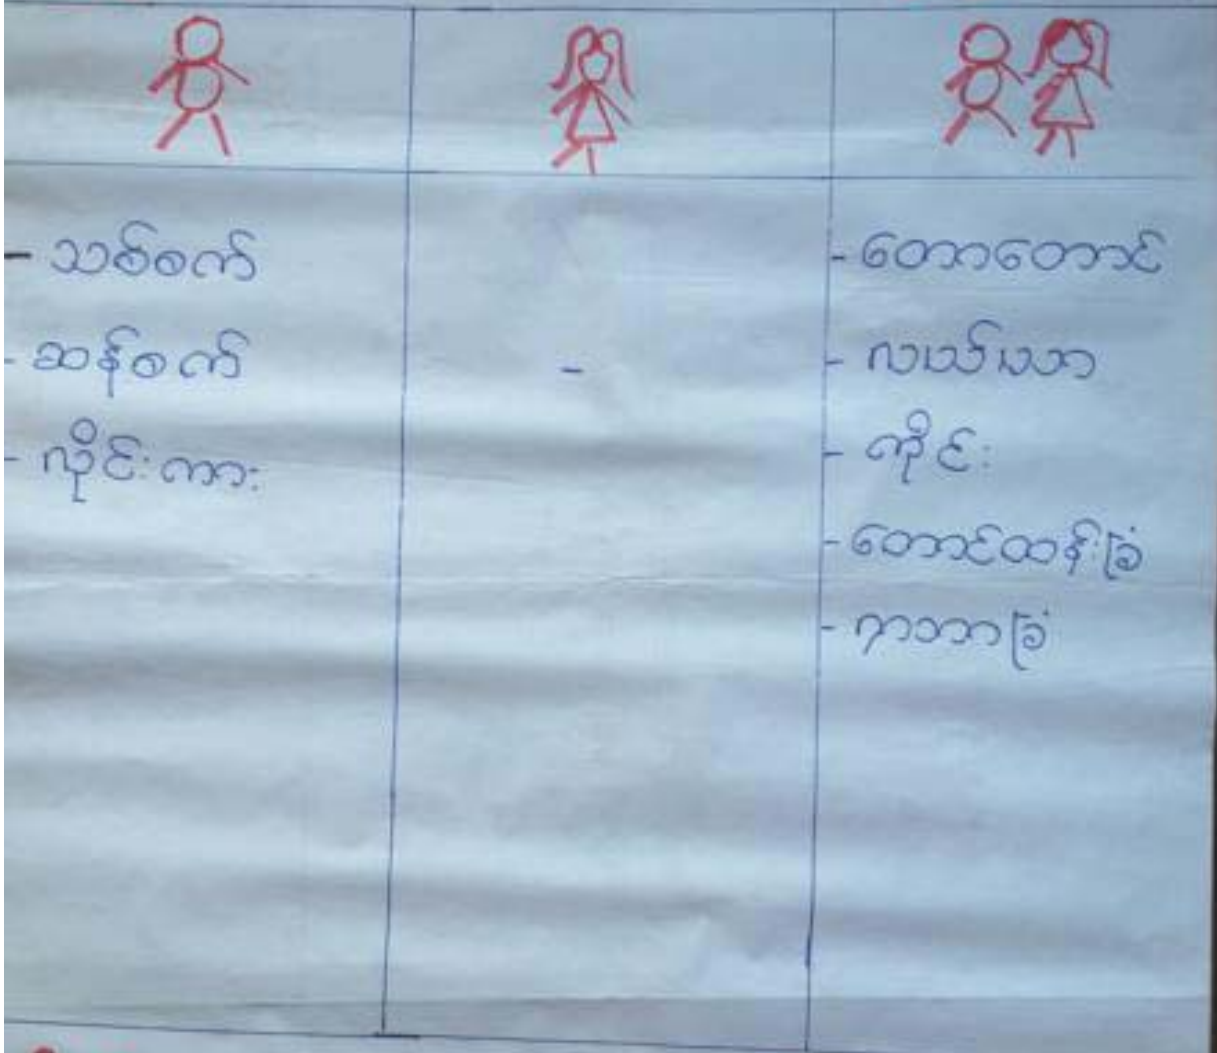 - သစ်စက်
- ဆန်စက်
- လိုင်းကား
-
- တောတောင်
- လယ်ယာ
- ကိုင်း
- တောင်ထန်းခြံ
- ရာဘာခြံ